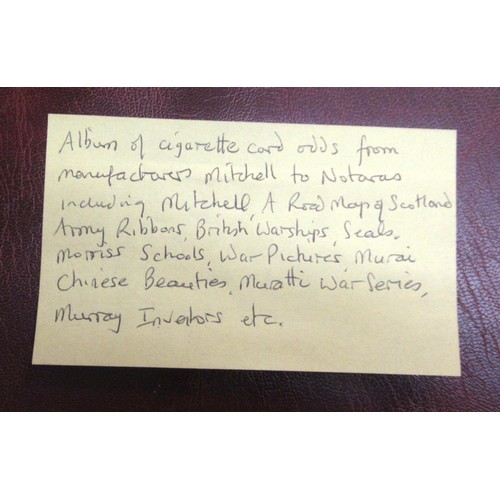 Album of cigarette card odds from
manufacturers Mitchell to Notaras
including Mitchell, A Road Map of Scotland
Army Ribbons, British Warships, Seals,
Morriss Schools, War Pictures, Murai
Chinese Beauties, Muratti War Series,
Murray Inventors etc.